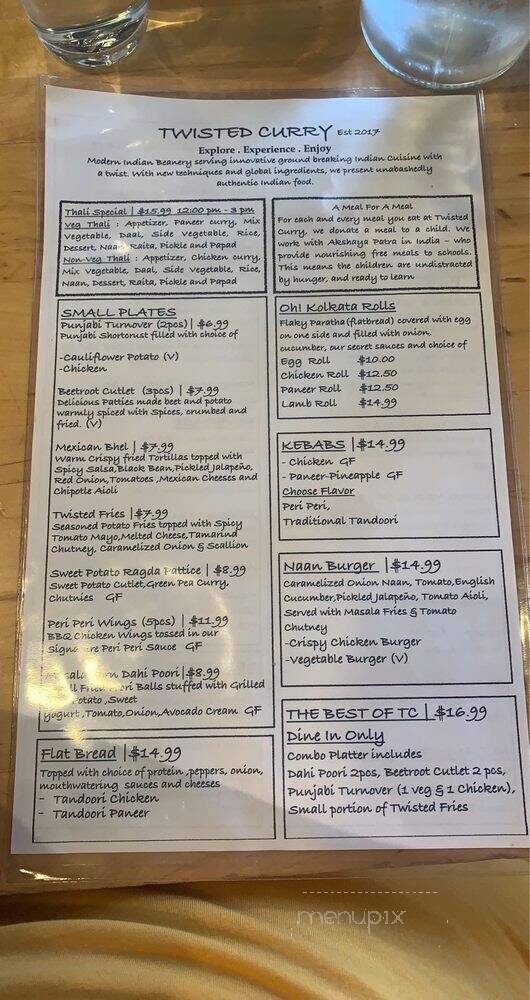 TWISTED CURRY Est 2017
Explore . Experience . Enjoy
Modern Indian Beanery serving innovative ground breaking Indian Cuisine with
a twist. With new techniques and global ingredients, we present unabashedly
authentic Indian food.
Thali Special | $15.99 12:00 pm - 3 pm
Veg Thali : Appetizer, Paneer curry, Mix
Vegetable, Daal, Side Vegetable, Rice,
Dessert, Naan, Raita, Pickle and Papad
Non-Veg Thali : Appetizer, Chicken curry,
Mix Vegetable, Daal, Side Vegetable, Rice,
Naan, Dessert, Raita, Pickle and Papad
A Meal For A Meal
For each and every meal you eat at Twisted
Curry, we donate a meal to a child. We
work with Akshaya Patra in India – who
provide nourishing free meals to schools.
This means the children are undistracted
by hunger, and ready to learn
SMALL PLATES
Punjabi Turnover (2pcs) | $6.99
Punjabi Shortcrust filled with choice of
-Cauliflower Potato (V)
-Chicken
Beetroot Cutlet (3pcs) | $7.99
Delicious Patties made beet and potato
warmly spiced with Spices, crumbed and
fried. (V)
Mexican Bhel | $7.99
Warm Crispy fried Tortillas topped with
Spicy Salsa,Black Bean,Pickled Jalapeño,
Red Onion,Tomatoes ,Mexican Cheeses and
Chipotle Aioli
Twisted Fries |$7.99
Seasoned Potato Fries topped with Spicy
Tomato Mayo,Melted Cheese,Tamarind
Chutney, Caramelized Onion & Scallion
Sweet Potato Ragda Pattice | $8.99
Sweet Potato Cutlet,Green Pea Curry,
Chutnies GF
Peri Peri Wings (5pcs) | $11.99
BBQ Chicken Wings tossed in our
Signature Peri Peri Sauce GF
Dahi Poori|$8.99
Balls stuffed with Grilled
Potato ,Sweet
yogurt ,Tomato,Onion,Avocado Cream GF
Flat Bread |$14.99
Topped with choice of protein ,peppers, onion,
mouthwatering sauces and cheeses
- Tandoori Chicken
- Tandoori Paneer
Oh! Kolkata Rolls
Flaky Paratha(flatbread) covered with egg
on one side and filled with onion,
cucumber, our secret sauces and choice of
Egg Roll $10.00
Chicken Roll $12.50
Paneer Roll $12.50
Lamb Roll $14.99
KEBABS |$14.99
- Chicken GF
- Paneer-Pineapple GF
Choose Flavor
Peri Peri,
Traditional Tandoori
Naan Burger |$14.99
Caramelized Onion Naan, Tomato,English
Cucumber,Pickled Jalapeño, Tomato Aioli,
Served with Masala Fries & Tomato
Chutney
-Crispy Chicken Burger
-Vegetable Burger (V)
THE BEST OF TC | $16.99
Dine In Only
Combo Platter includes
Dahi Poori 2pcs, Beetroot Cutlet 2 pcs,
Punjabi Turnover (1 veg & 1 Chicken),
Small portion of Twisted Fries
menupix